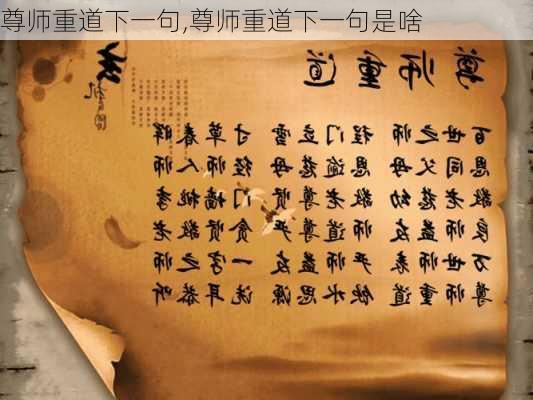 尊师重道下一句,尊师重道下一句是啥
尊师重道
百世之师 程门立雪 寸草春晖
恩同父母 恩逾慈母 经师人师
敬老慈幼 敬老尊贤 门墙桃李
良师益友 师道尊严 贪贤敬老
万世师表 严师益友 一字之师
尊师重道 饮水思源 洗耳恭听